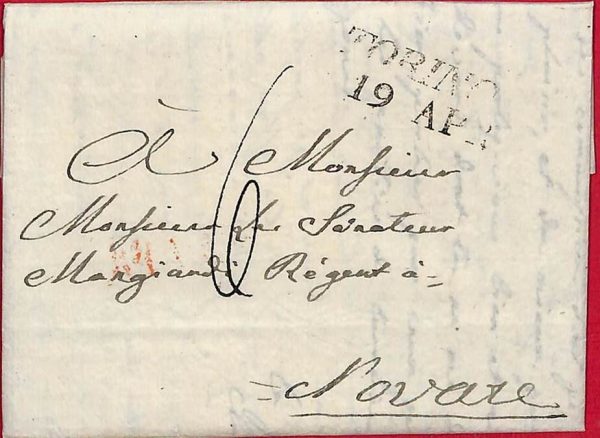 TORINO
19 APR
6
À Monsieur
Monsieur Le Sénateur
Mangiardi Régent à =
= Novare